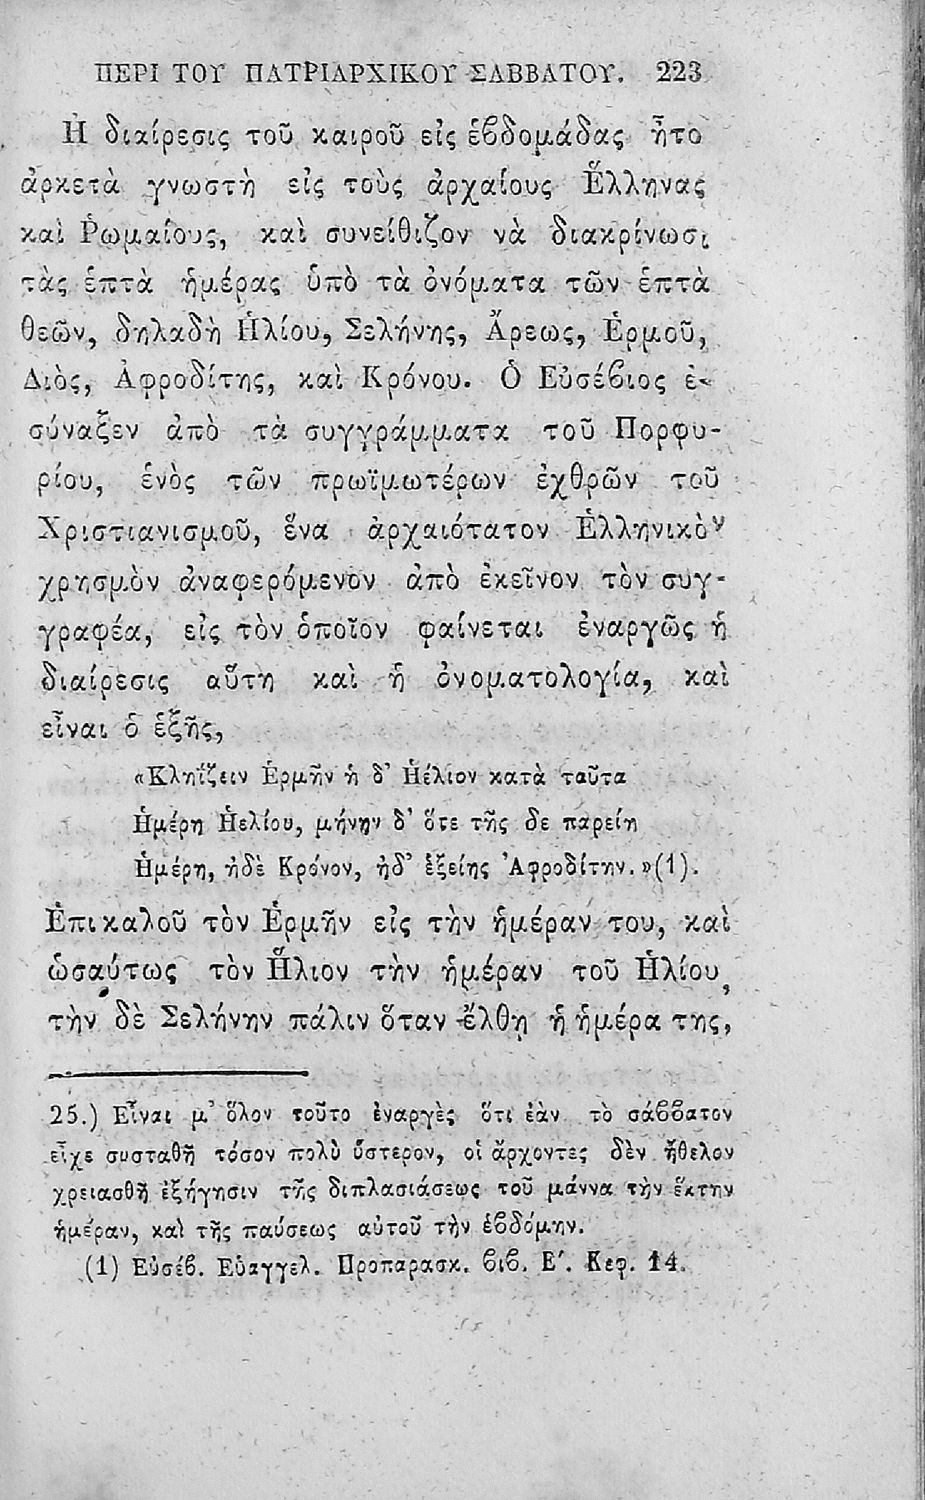 ΠΕΡΙ ΤΟΥ ΠΑΤΡΙΑΡΧΙΚΟΥ ΣΑΒΒΑΤΟΥ. 223
Ἡ διαίρεσις τοῦ καιροῦ εἰς ἑϐδομάδας ἦτο
ἀρκετὰ γνωστὴ εἰς τοὺς ἀρχαίους Ἕλληνας
καὶ Ῥωμαίους, καὶ συνείθιζον νὰ διακρίνωσι
τὰς ἑπτὰ ἡμέρας ὑπὸ τὰ ὀνόματα τῶν ἑπτὰ
θεῶν, δηλαδὴ Ἡλίου, Σελήνης, Ἄρεως, Ἑρμοῦ,
Διὸς, Ἀφροδίτης, καὶ Κρόνου. Ὁ Εὐσέϐιος ἐ-
σύναξεν ἀπὸ τὰ συγγράμματα τοῦ Πορφυ-
ρίου, ἑνὸς τῶν πρωϊμωτέρων ἐχθρῶν τοῦ
Χριστιανισμοῦ, ἕνα ἀρχαιότατον Ἑλληνικὸν
χρησμὸν ἀναφερόμενον ἀπὸ ἐκεῖνον τὸν συγ-
γραφέα, εἰς τὸν ὁποῖον φαίνεται ἐναργῶς ἡ
διαίρεσις αὕτη καὶ ἡ ὀνοματολογία, καὶ
εἶναι ὁ ἑξῆς,
«Κληΐζειν Ἑρμῆν ἡ δ᾽ Ἡέλιον κατὰ ταῦτα
Ἡμέρη Ἡελίου, μήνην δ᾽ ὅτε τῆς δε παρείη
Ἡμέρη, ἠδὲ Κρόνον, ἠδ᾽ ἑξείης Ἀφροδίτην.»(1).
Ἐπικαλοῦ τὸν Ἑρμῆν εἰς τὴν ἡμέραν του, καὶ
ὡσαύτως τὸν Ἥλιον τὴν ἡμέραν τοῦ Ἡλίου,
τὴν δὲ Σελήνην πάλιν ὅταν ἔλθη ἡ ἡμέρα της,
25.) Εἶναι μ᾽ ὅλον τοῦτο ἐναργὲς ὅτι ἐὰν τὸ σάϐϐατον
εἶχε συσταθῆ τόσον πολὺ ὕστερον, οἱ ἄρχοντες δὲν ἤθελον
χρειασθῆ ἐξήγησιν τῆς διπλασιάσεως τοῦ μάννα τὴν ἕκτην
ἡμέραν, καὶ τῆς παύσεως αὐτοῦ τὴν ἑϐδόμην.
(1) Εὐσέϐ. Εὐαγγελ. Προπαρασκ. ϐιϐ. Ε΄. Κεφ. 14.